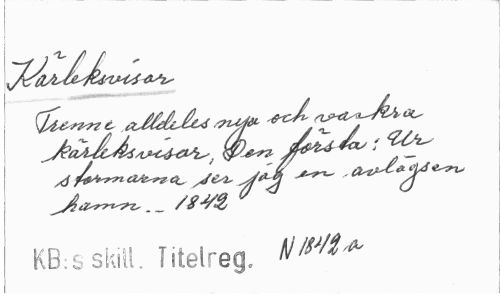 Kärleksvisor
Trenne alldeles nya och vackra
kärleksvisor, Den första: Ur
stormarna ser jag en avlägsen
hamn.. 1842
KB:s skill. Titelreg. N 1842 a